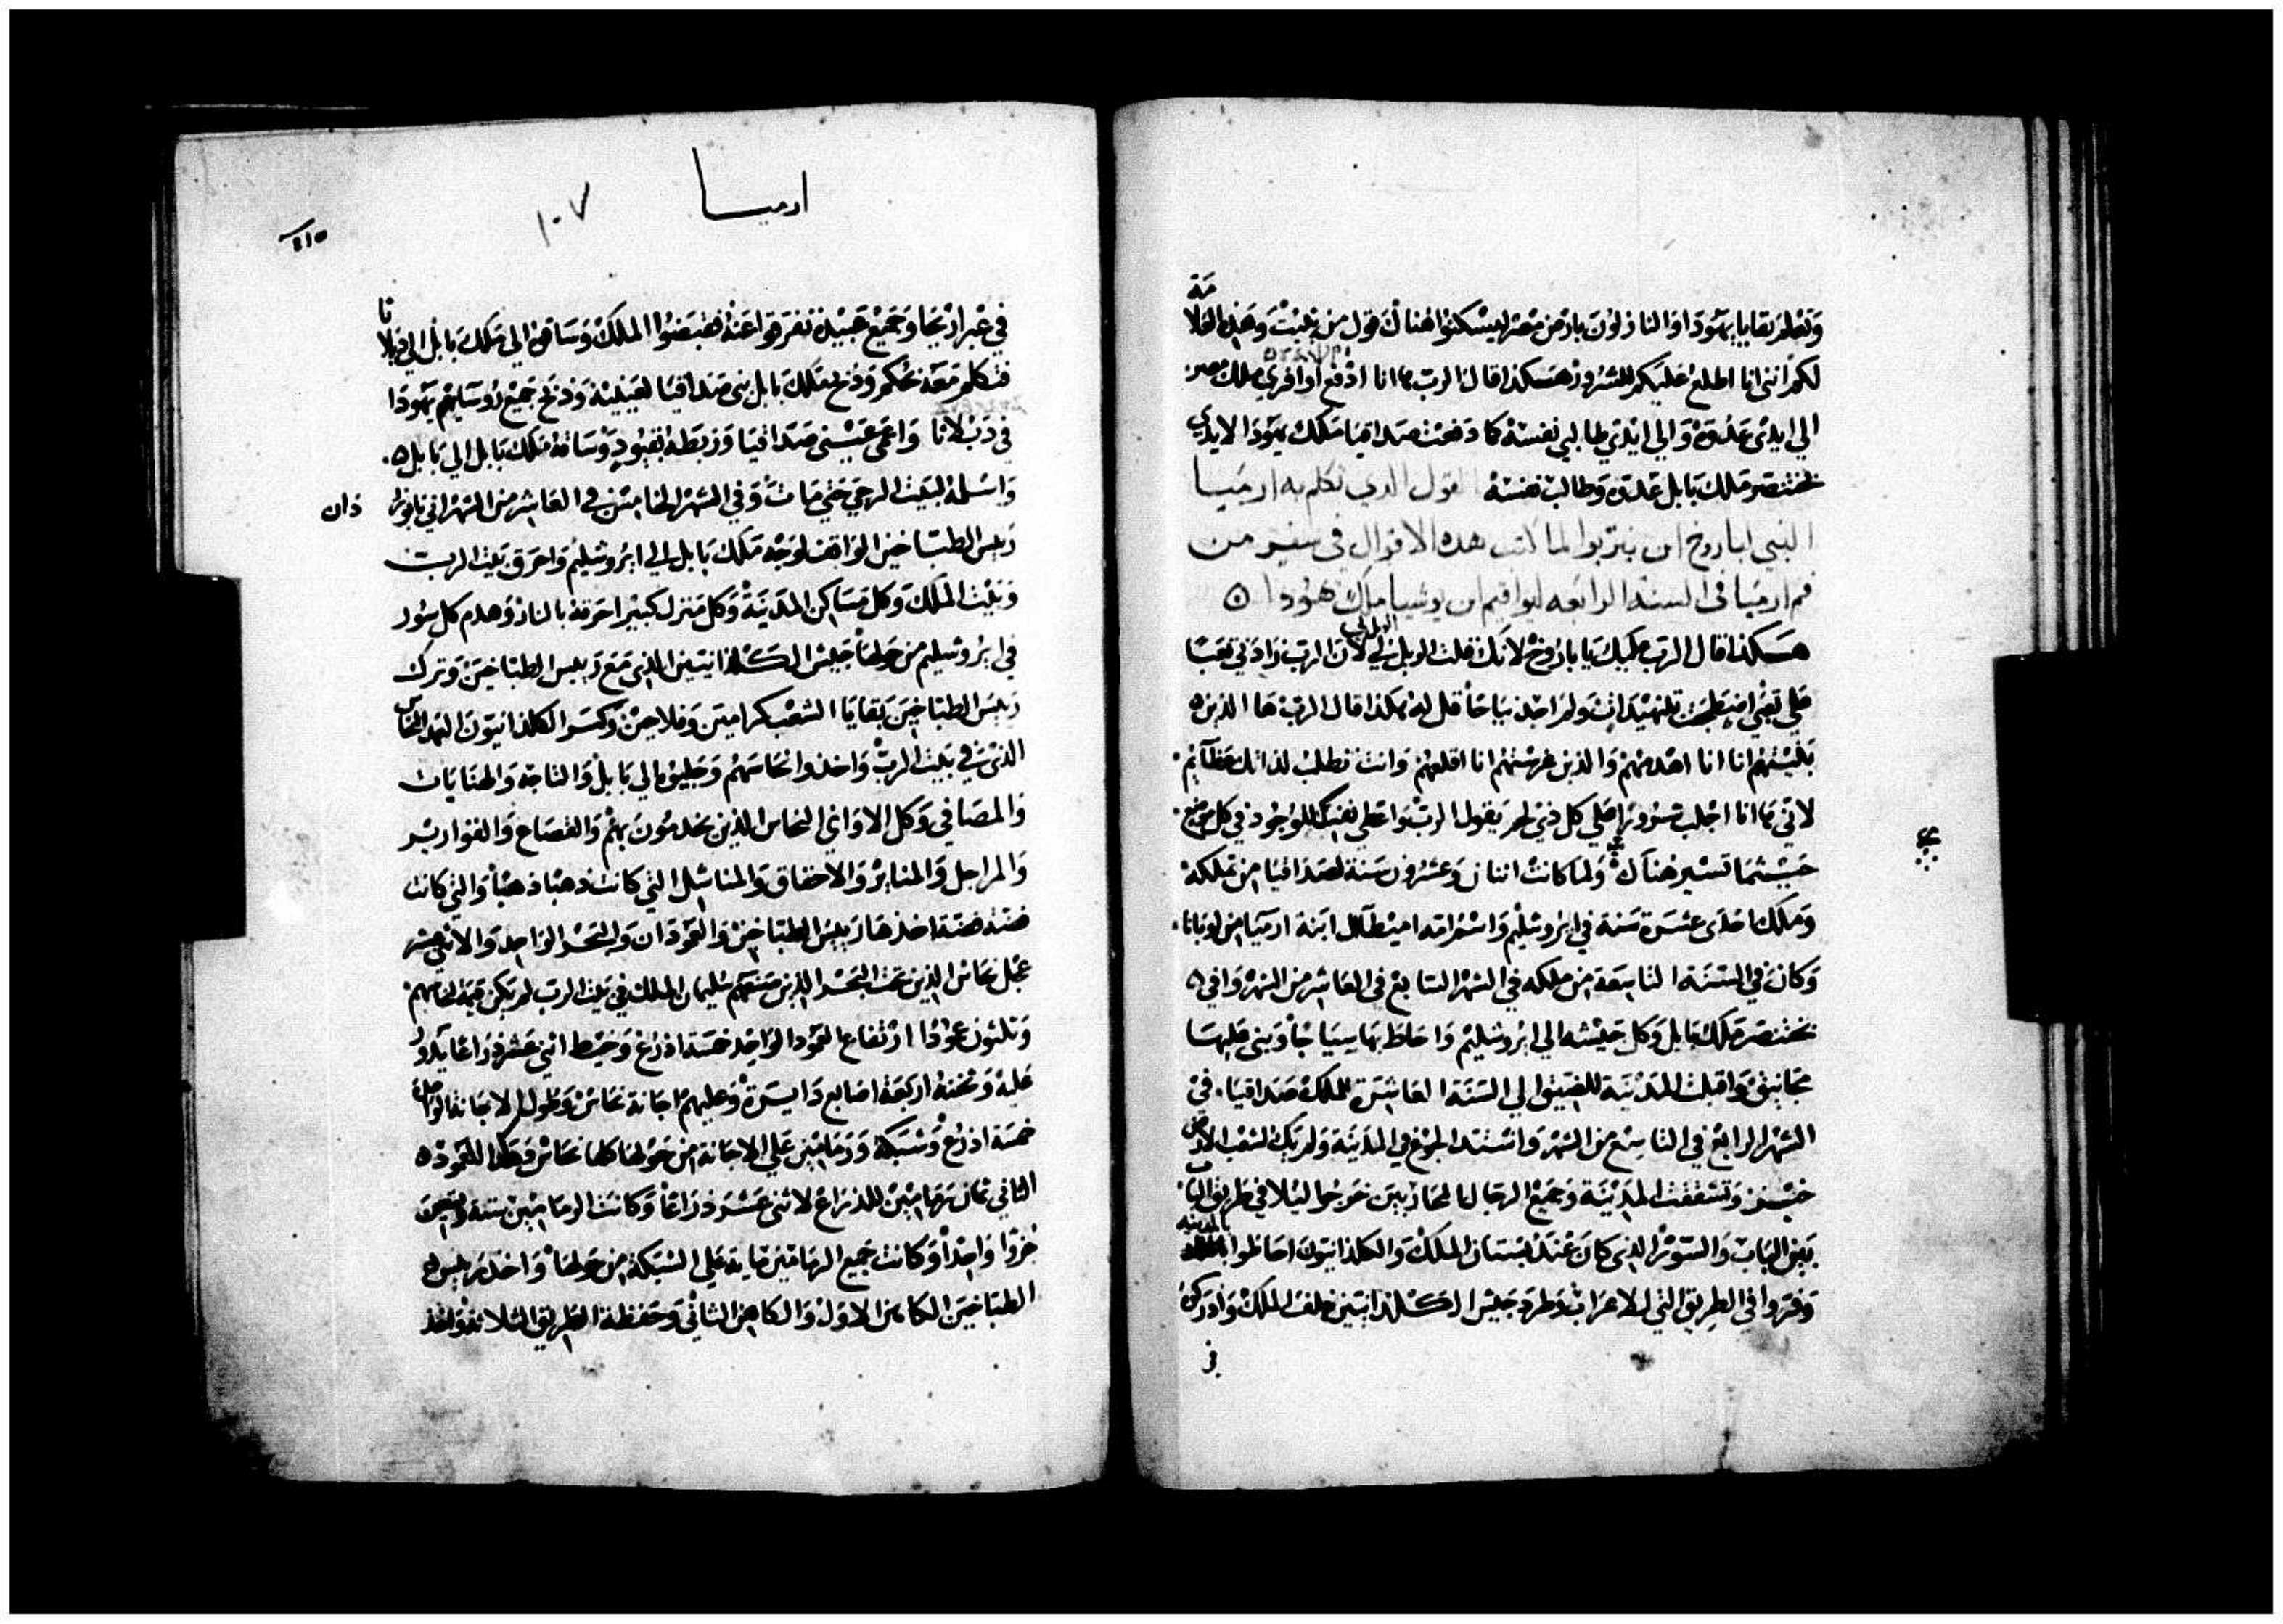 وتعلم بقايا يهودا والنازلون بارض مصر ليسكنوا هناك قول من يثبت وهذه العلا
مة
لكم انني انا اطلع عليكم للشرور هكذا قال الرب ها انا ادفع اوافري ملك مصر
الي ايدي عدوه والي ايدي طالبي نفسه كما دفعت صداقيا ملك يهودا لايدي
بختنصر ملك بابل عدوه وطالب نفسه القول الدي تكلم به ارميا
النبي لباروخ ابن نيريوا لما كتب هده الاقوال في سفر من
فم ارميا في السنه الرابعه ليواقيم ابن يوشيا ملك يهودا
هكذا قال الرب عليك يا باروخ لانك قلت الويل لي لان الرب زادني تعبا
علي تعبي اضطجعت بتنهيدات ولم اجد نياحا قل له هكذا قال الرب ها الذين
بنيتهم انا انا اهدمهم والذين غرستهم انا اقلعهم وانت تطلب لذاتك عظايم
لاني ها انا اجلب شرورا علي كل ذي لحم يقول الرب واعطي نفسك للوجود في كل موضع
حيثما تسير هناك ولما كانت اثنان وعشرون سنة لصداقيا من تملكه
وملك احدى عشرة سنة في ايروشليم واسم امه اميطال ابنة ارميا من لوبانا
وكان في السنة التاسعة من ملكه في الشهر السابع في العاشر من الشهر وافي
بختنصر ملك بابل وكل جيشه الي ايروشليم واحاط بها سياجا وبني عليها
مجانيق واقبلت المدينة للضيق الي السنة العاشرة للملك صداقيا في
الشهر الرابع في التاسع من الشهر واشتد الجوع في المدينة ولم يك لشعب الارض
خبز وتشققت المدينة وجميع الرجال المحاربين خرجوا ليلا في طريق الباب
بين الباب والسور الذي كان عند بستان الملك والكلدانيون احاطوا بالمدينه
وفروا في الطريق التي للاعراب وطرد جيش الكلدانيين خلف الملك وادركوه
في
ارميا
١٠٧
في عبر اريحا وجميع عبيده تفرقوا عنه فقبضوا الملك وساقوه الي ملك بابل الي دبلا
تا
فتكلم معه بحكم وذبح ملك بابل بني صداقيا لعينيه وذبح جميع روسايهم يهودا
في دبلاتا واعمي عيني صداقيا وربطه بقيود وساقه ملك بابل الي بابل
واسلمه لبيت الرحي حتي مات وفي الشهر الخامس في العاشر من الشهر اتي نابوزر
دان
ريس الطباخين الواقف لوجه ملك بابل الي ايروشليم واحرق بيت الرب
وبيت الملك وكل مساكن المدينة وكل منزل كبير احرقه بالنار وهدم كل سور
في ايروشليم من حولها جيش الكلدانيين الذي مع ريس الطباخين وترك
ريس الطباخين بقايا الشعب كرامين وفلاحين وكسر الكلدانيون العمد النحاس
الذي في بيت الرب واخذوا نحاسهم وجلبوه الي بابل والتاجة والحنايات
والمصافي وكل الاواني النحاس الذين يخدمون بهم والقصاع والقوارير
والمراجل والمنابر والاحقاق والمناشل التي كانت ذهبا ذهبا والتي كانت
فضة فضة اخذها ريس الطباخين والعمودان والبحر الواحد والاثني عشر
عجل نحاس الذين تحت البحر الذين صنعهم سليمان الملك في بيت الرب لم يكن قيمة لنحاسهم
وثلثون عمودا ارتفاع العمود الواحد خمسة اذرع وخيط اثني عشر ذراعا يدور
عليه وثخنه اربعة اصابع دايرة وعليهم اجانة نحاس وطول الاجانة الواحدة
خمسة اذرع وشبكة ورمامين علي الاجانة من حولها كلها نحاس وهكذا للعمود
الثاني ثمان رمامين للذراع لاثني عشر ذراعا وكانت الرمامين ستة وتسعين
جزوا واحدا وكانت جميع الرمامين ماية علي الشبكة من حولها واخذ ريس
الطباخين الكاهن الاول والكاهن الثاني وحفظة الطريق الثلاثة واخذ